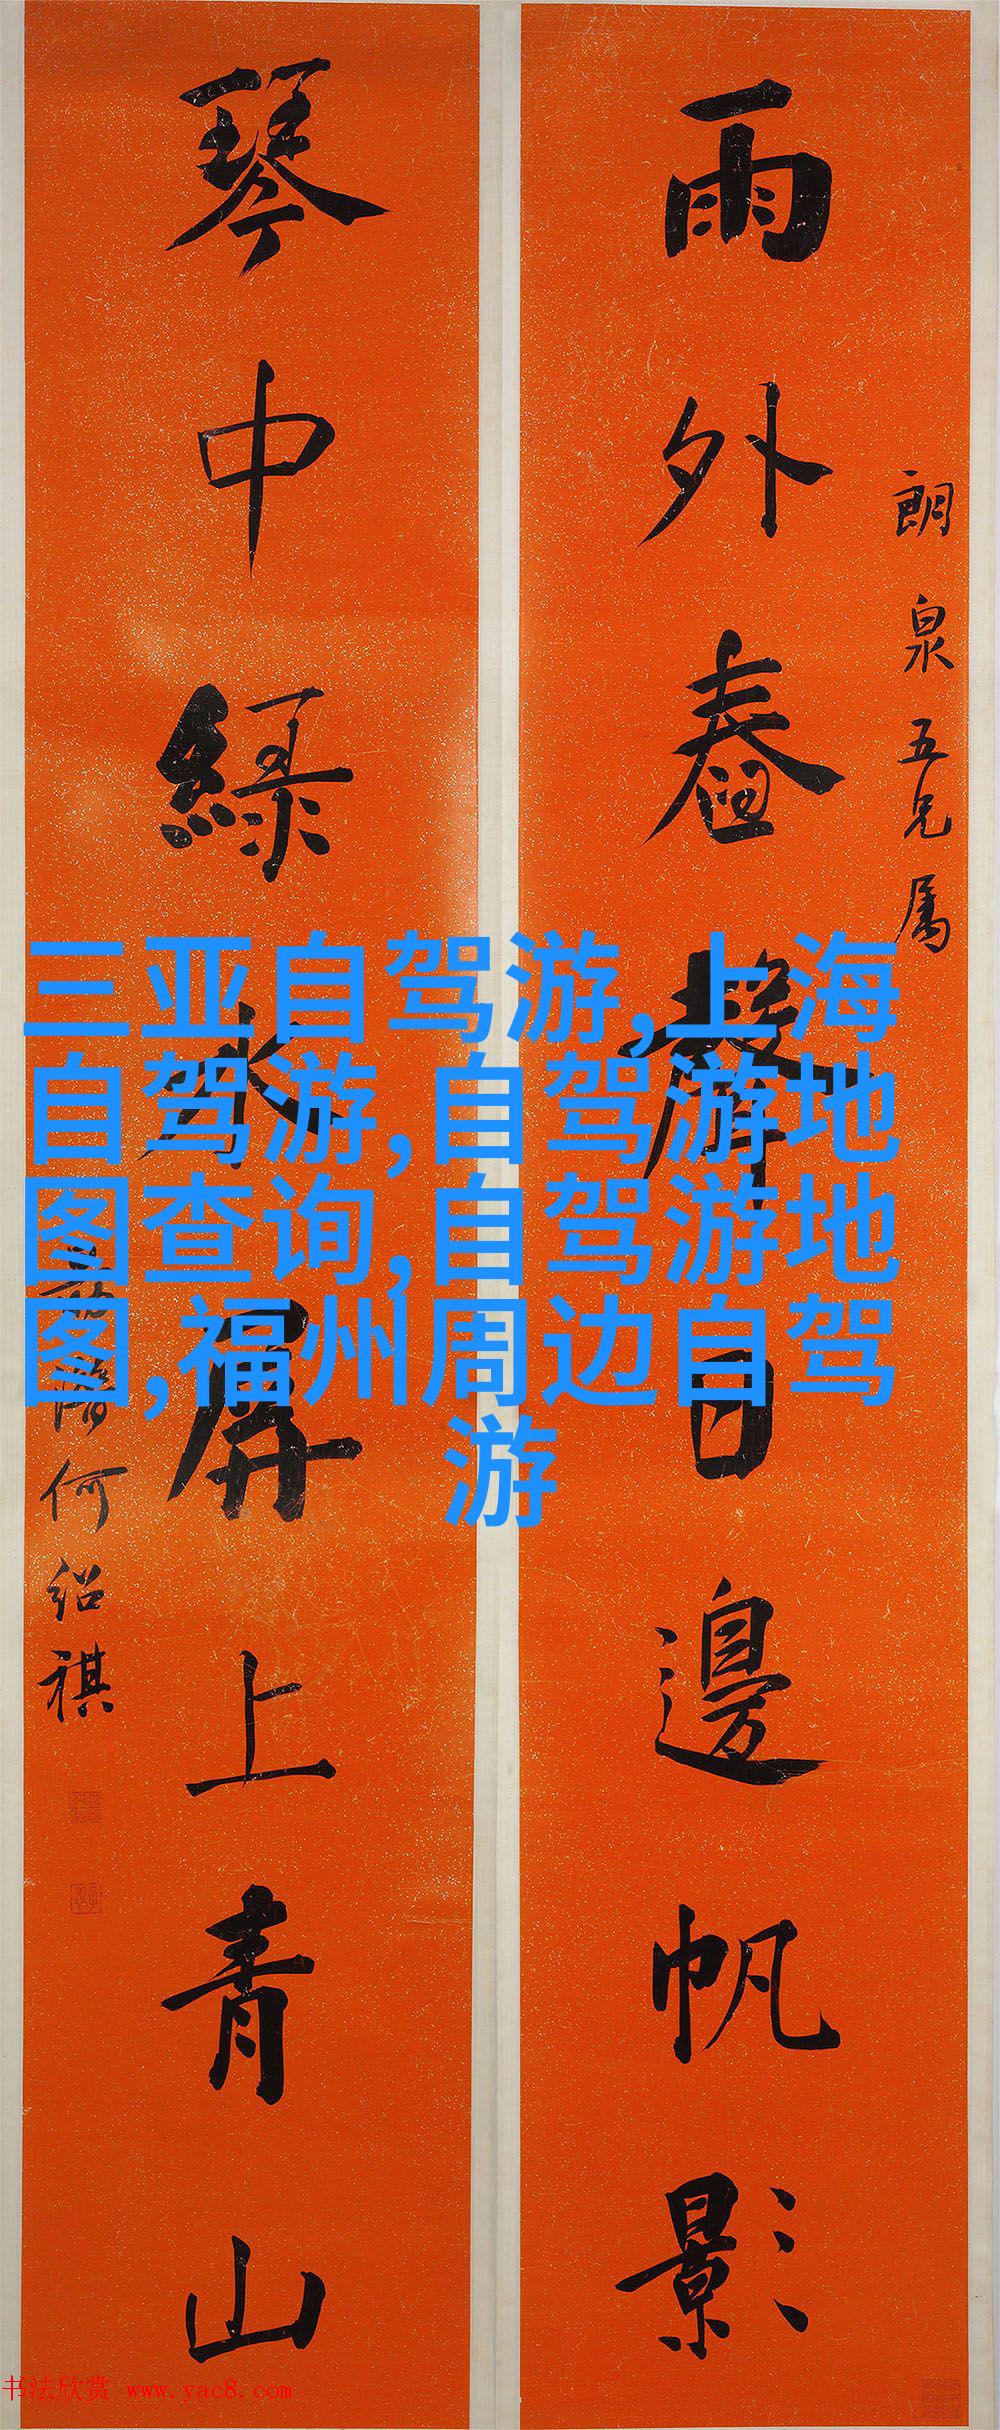 雨外春聲日邊帆影
朗泉五兄属
琴中綠水屏上青山
何紹祺
三亚自驾游,上海
自驾游,自驾游地
图查询,自驾游地
图,福州周边自驾
游
书法欣赏 www.yac8.com